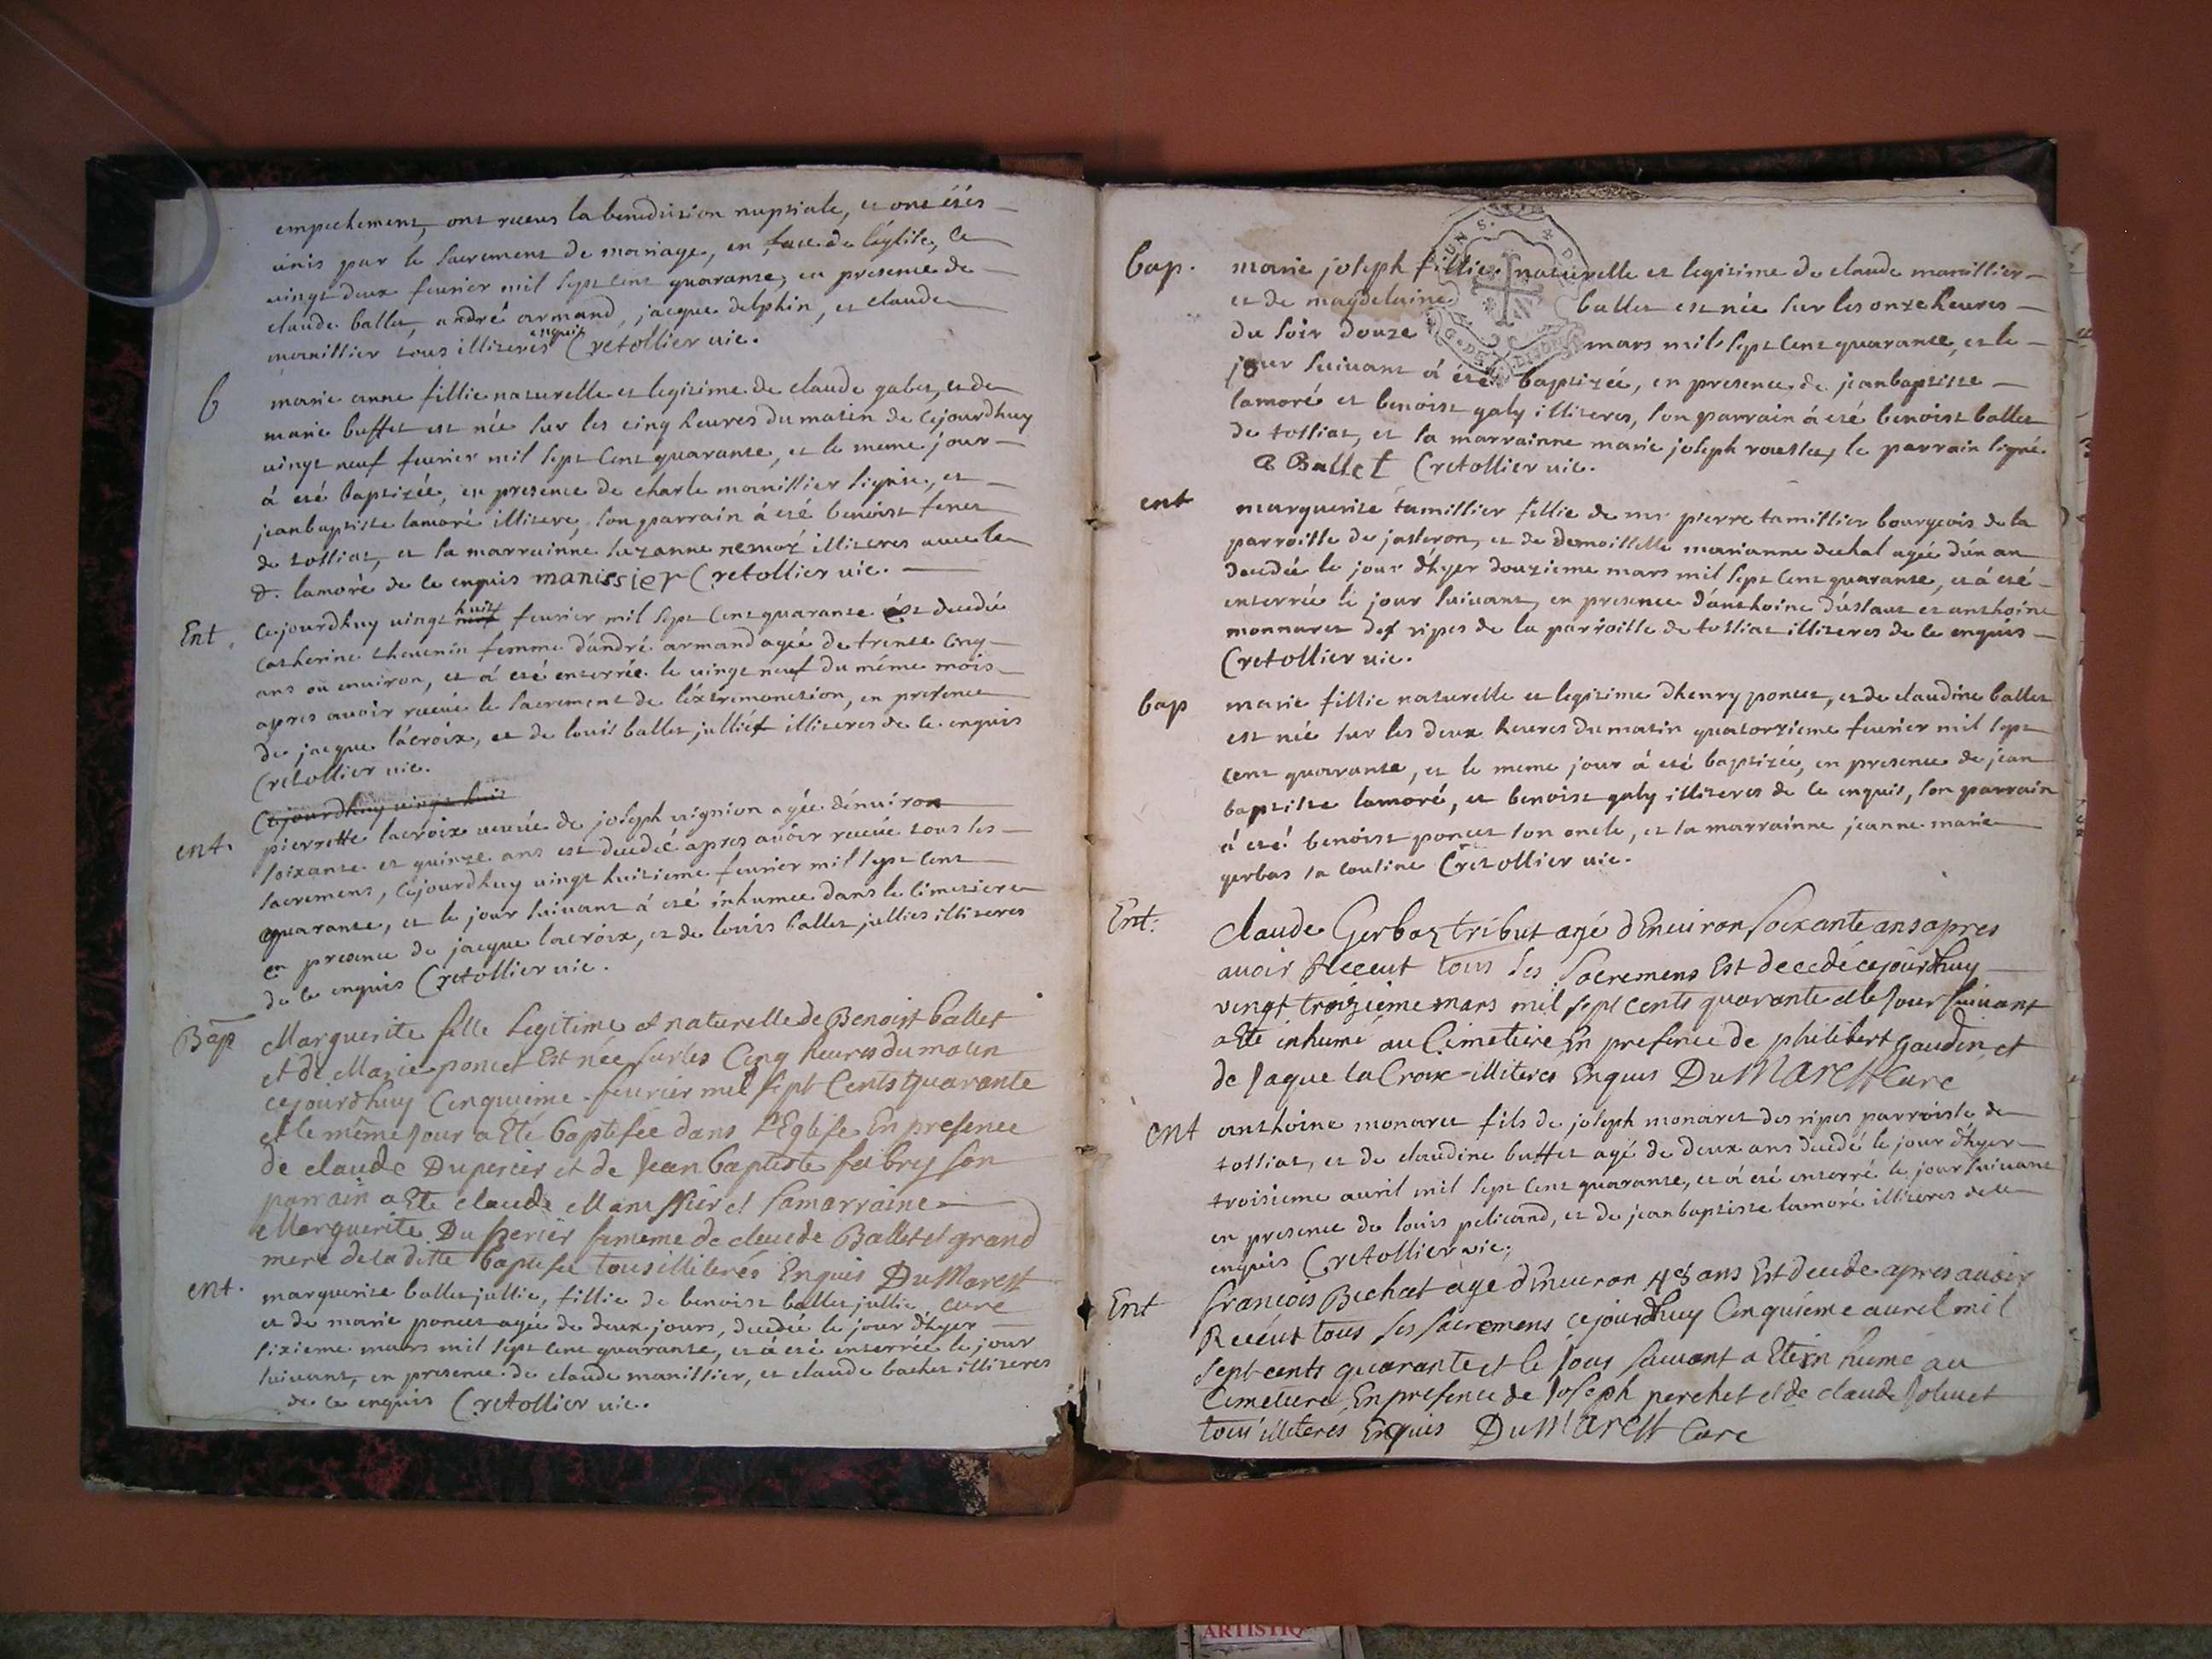 empechement, ont receus la benediction nuptiale, et ont étés
unis par le sacrement de mariage, en face de léglise, ce
vingt deux feurier mil sept cent quarante, en presence de
claude ballet, andré armand, jacque delphin, et claude
manissier tous illiterés enquis Cretollier vic.
b
marie anne fillie naturelle et legitime de claude galet, et de
marie buffet est née sur les cinq heures du matin de cejourdhuy
vingt neuf feurier mil sept cent quarante, et le meme jour
á eté baptizée, en presence de charle manissier signé, et
jeanbaptiste lamoré illitere, son parrain á eté benoist
de tossiat, et la marrainne suzanne illiteres avec le
d. lamoré de ce enquis manissier Cretollier vic.
Ent.
cejourdhuy vingt neuf huit feurier mil sept cent quarante est decedée
catherine theuenin femme dándré armand agée de trente cinq
ans ou enuiron, et á eté enterrée le vingt neuf du méme mois
apres auoir receue le sacrement de léxtremonction, en presence
de jacque lácroix, et de louis ballet jullief illiteres de ce enquis
Cretollier vic.
Cejourdhuy vingt huit
ent.
pierrette lacroix veuue de joseph vignion agée dénuiron
soixante et quinze ans est decedée apres auoir receue tous ses
sacremens, cejourdhuy vingt huitieme feurier mil sept cent
quarante, et le jour suiuant á eté inhumee dans le cimetiere
en presence de jacque lacroix, et de louis ballet jullies illiteres
de ce enquis Cretollier vic.
Bap
Marguerite fille Legitime et naturelle de Benoist Ballet
et de Marie poncet Est née sur les Cinq heures du matin
cejourdhuy Cinquieme feurier mil sept Cents quarante
et le même jour a Eté baptisée dans L'Eglise En presence
de claude Duperier et de Jean baptiste fabry son
parrain a Ete claude Manissier et Samarraine
Marguerite Du perier femme de claude Ballet et grand
mere de la ditte baptisée tous illiterés Enquis DuMarest
cure
ent.
marguerite ballet jullie, fillie de benoist ballet jullie
et de marie poncet agée de deux jours, decedée le jour dhyer
sixieme mars mil sept cent quarante, et á eté enterrée le jour
suiuant, en presence de claude manissier, et claude bachet illiteres
de ce enquis Cretollier vic.
bap.
marie joseph fillie naturelle et legitime de claude manissier
et de magdelaine ballet est née sur les onze heures
du soir douze mars mil sept cent quarante, et le
jour suiuant á été baptizée, en presence de jeanbaptiste
lamoré et benoist galy illiteres, son parrain á eté benoist ballet
de tossiat, et la marrainne marie joseph rousset, le parrain signé
B Ballet Cretollier vic.
ent
marguerite tamissier fillie de mr pierre tamissier bourgeois de la
parroisse de jasseron, et de demoisselle marianne dechal agée dún an
decedée le jour dhyer douzieme mars mil sept cent quarante, et á eté
enterrée le jour suiuant, en presence dánthoine et anthoine
monnaret des ripes de la parroisse de tossiat illiteres de ce enquis
Cretollier vic.
bap
marie fillie naturelle et legitime dhenry poncet, et de claudine ballet
est née sur les deux heures du matin quatorzieme feurier mil sept
cent quarante, et le meme jour á eté baptizée, en presence de jean
baptiste lamoré, et benoist galy illiteres de ce enquis, son parrain
á eté benoist poncet son oncle, et la marrainne jeanne marie
gerbas sa cousine Cretollier vic.
Ent:
claude Gerbaz tribut agé d'Enuiron soixante ans apres
auoir Receut tous ses sacremens Est decedé cejourdhuy
vingt troizieme mars mil sept cents quarante et le jour suiuant
a Eté inhumé au Cimetiere En presence de philibert Gaudin et
de jaque la Croix illiteres Enquis DuMarest Cure
ent
anthoine monaret fils de joseph monaret des ripes parroisse de
tossiat, et de claudine buffet agé de deux ans decedé le jour dhyer
troisieme auril mil sept cent quarante, et á eté enterré le jour suiuant
en presence de louis pelicand, et de jeanbaptiste lamoré illiteres de ce
enquis Cretollier vic.
Ent
francois Bechet agé d'Enuiron ans Est decede apres auoir
Receut tous ses sacremens cejourdhuy Cinquieme auril mil
sept cents quarante et le jour suiuant a Eté inhumé au
Cimetiere En presence de Joseph perchet et de claude
tous illiteres Enquis DuMarest Cure
ARTISTIQ